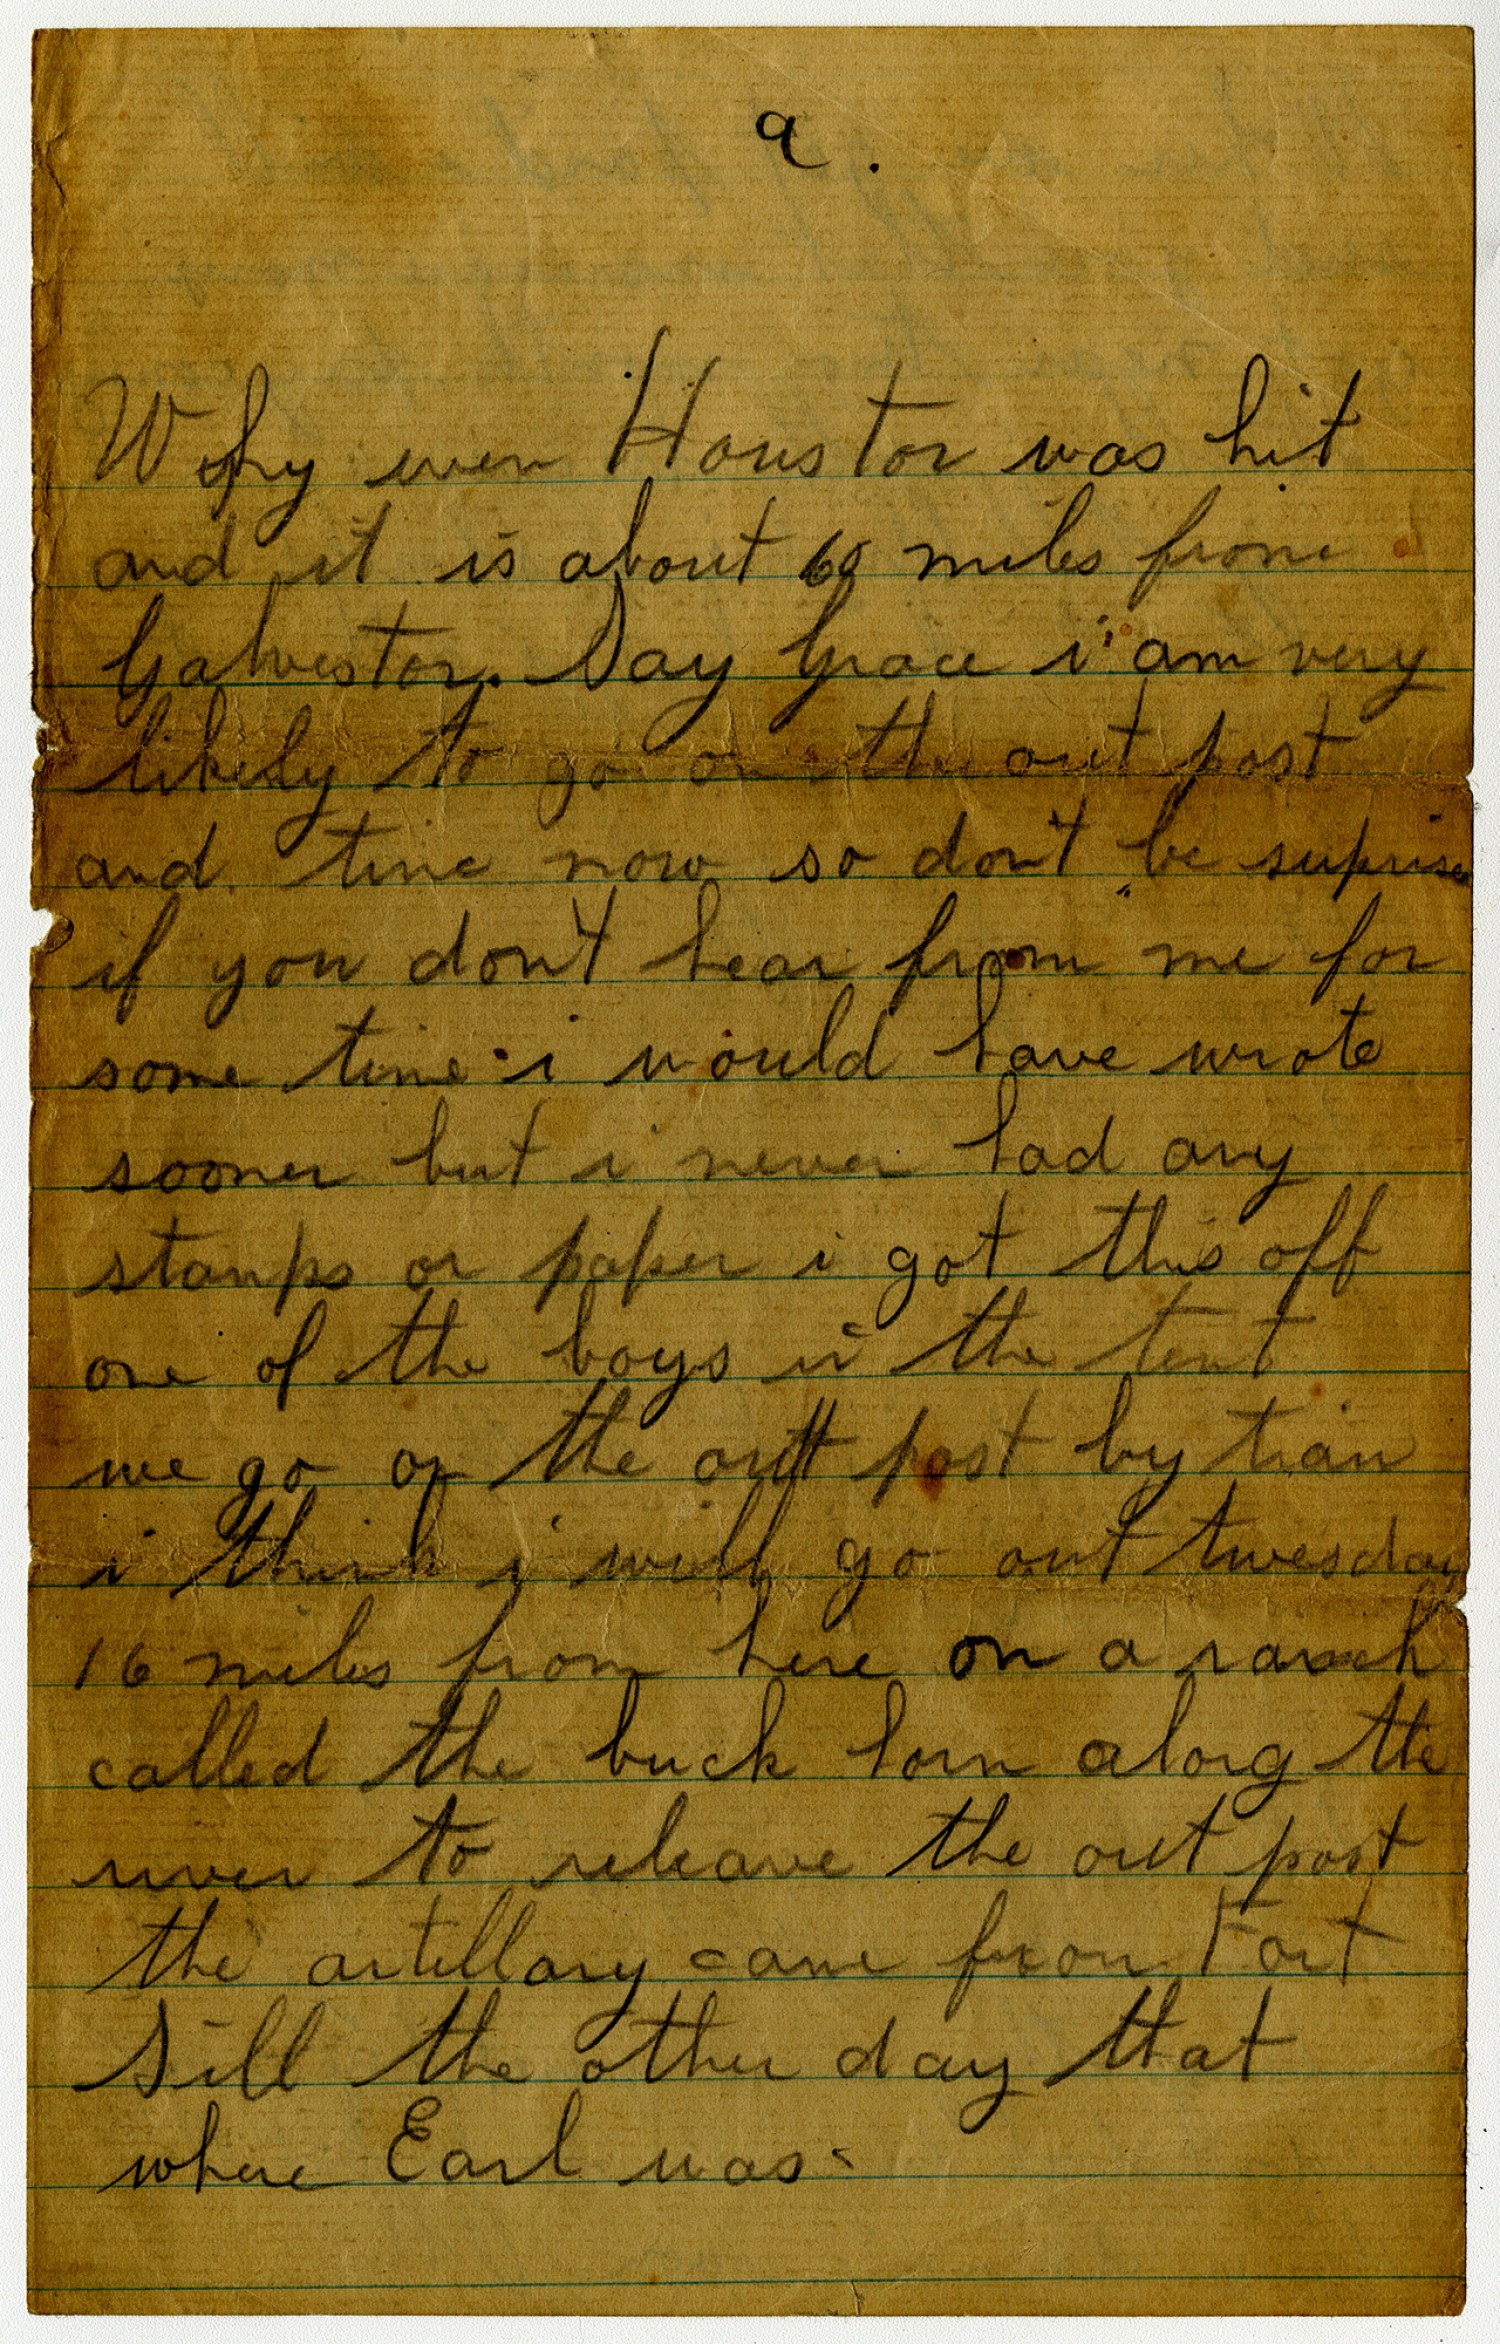 9.
Why even Houston was hit
and it is about 60 miles from
Galveston. Say Grace i am very
likely to go on the out post
and time now so don't be suprise
if you don't hear from me for
some time i would have wrote
sooner but i never had any
stamps or paper i got this off
one of the boys in the tent
we go on the out post by train
i think i will go out tuesday
16 miles from here on a ranch
called the buck horn along the
river to releave the out post
the artillary came from Fort
Sill the other day that
where Earl was.